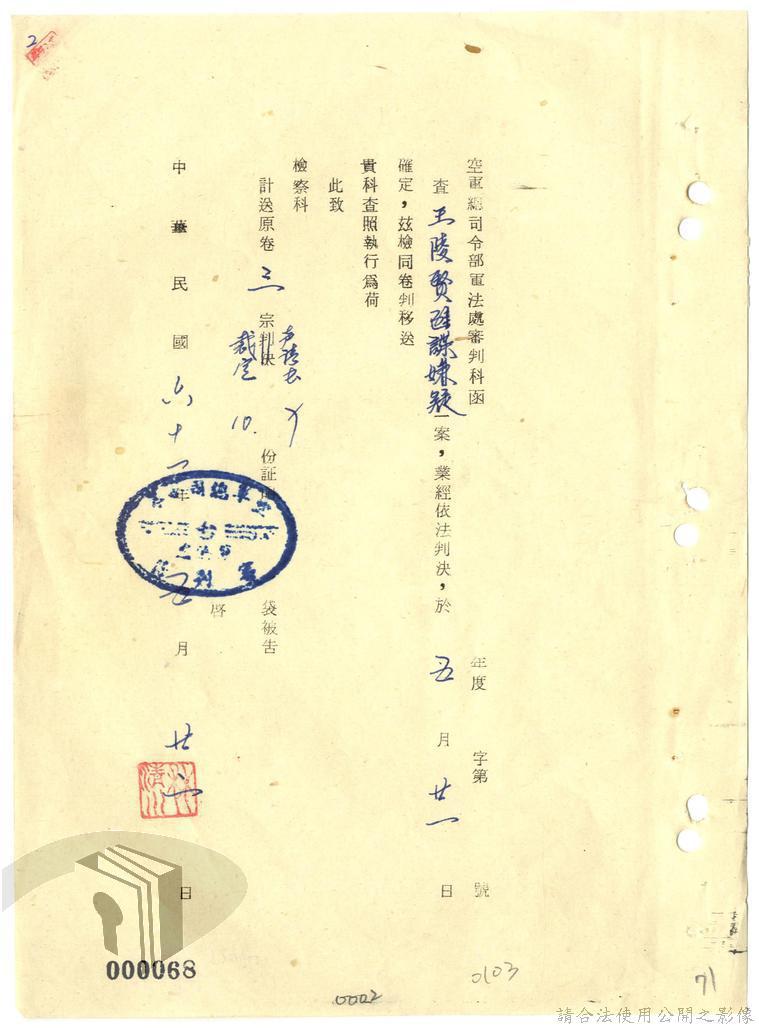 空軍總司令部軍法處審判科函
年度 字第 號
查王陵賢匪諜嫌疑一案，業經依法判決，於 五 月 廿一 日
確定，茲檢同卷判移送
貴科查照執行爲荷
此致
檢察科
計送原卷 三 宗判決 裁定 10. 份証 袋被告
啓
中華民國 六十一 年 五 月 廿六 日
000068
0002
0103
71
2
請合法使用公開之影像